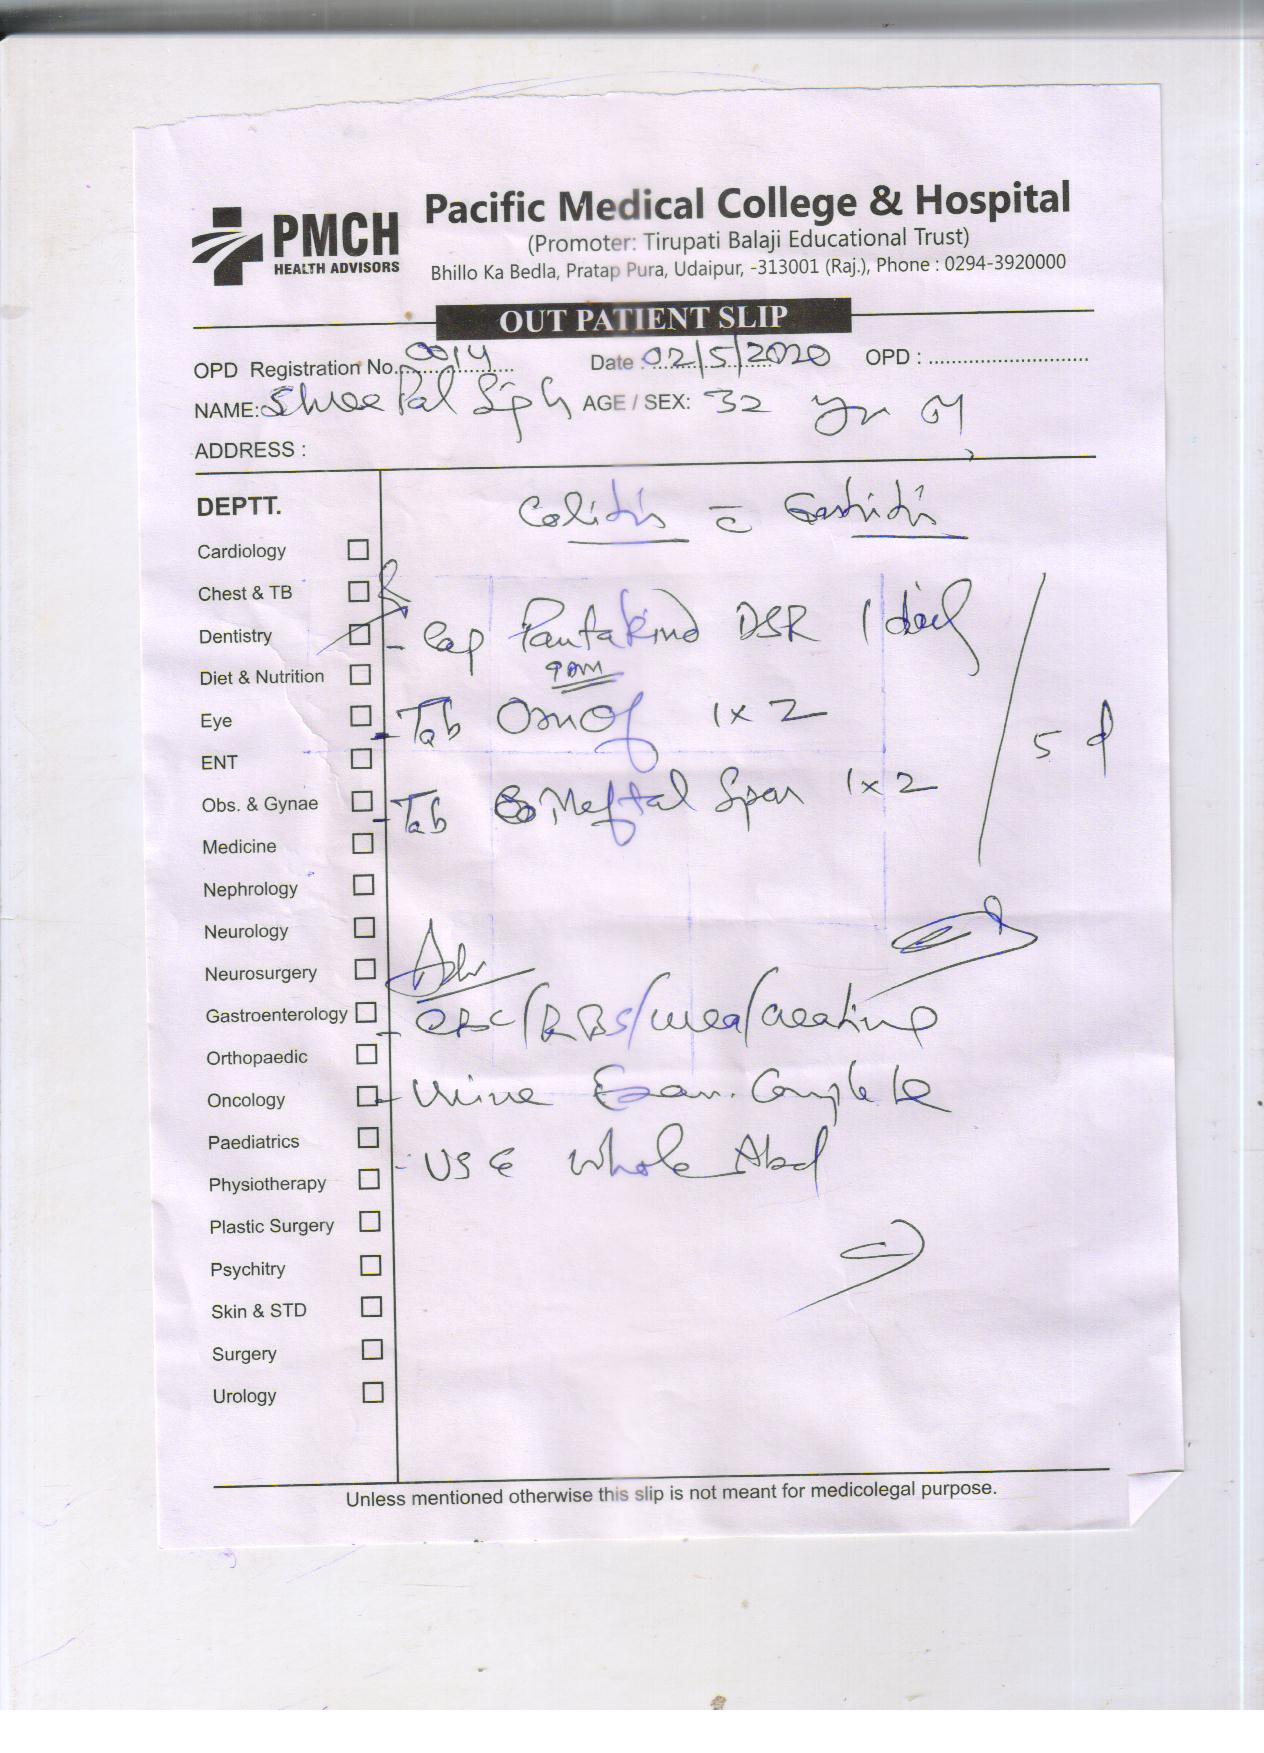 PMCH
HEALTH ADVISORS
Pacific Medical College & Hospital
(Promoter: Tirupati Balaji Educational Trust)
Bhillo Ka Bedla, Pratap Pura, Udaipur, -313001 (Raj.), Phone : 0294-3920000
OUT PATIENT SLIP
OPD Registration No. 0014 Date : 02/5/2020 OPD :
NAME: Shree Pal Singh AGE / SEX: 32 yr M
ADDRESS :
DEPTT.
Cardiology
Chest & TB
Dentistry
Diet & Nutrition
Eye
ENT
Obs. & Gynae
Medicine
Nephrology
Neurology
Neurosurgery
Gastroenterology
Orthopaedic
Oncology
Paediatrics
Physiotherapy
Plastic Surgery
Psychitry
Skin & STD
Surgery
Urology
Colitis c̄ Gastritis
- Cap Pantakind DSR 1 daily
- Tab Omof 1x2
- Tab Meftal Spas 1x2
5 d
Adv
- CBC/RBS/urea/creatinine
- Urine Exam. Complete
- USG Whole Abd
Unless mentioned otherwise this slip is not meant for medicolegal purpose.